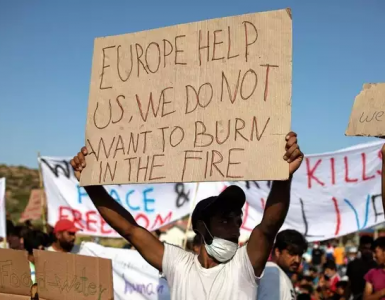 EUROPE HELP
US, WE DO NOT
WANT TO BURN
IN THE FIRE
we
PEACE &
FREEDOM
KILLS
Food + water